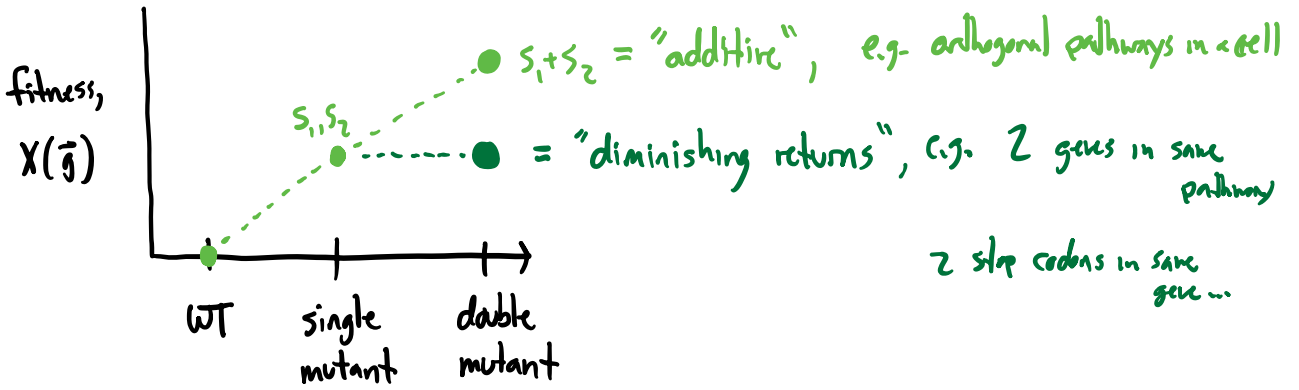 s₁+s₂ = "additive", e.g. orthogonal pathways in a cell
fitness,
X(g⃗)
s₁,s₂
= "diminishing returns", e.g. 2 genes in same
pathway
2 stop codons in same
gene...
WT
single
mutant
double
mutant